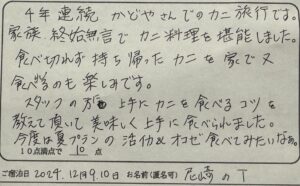 4年連続 かどやさんでのカニ旅行です。
家族、終始無言でカニ料理を堪能しました。
食べ切れず持ち帰ったカニを家で又
食べるのも楽しみです。
スタッフの方も上手にカニを食べるコツを
教えて頂いて美味しく上手に食べられました。
今度は夏プランの活イカ&オコゼ食べてみたいなぁ。
10点満点で 10 点
ご宿泊日 2024.12月9.10日 お名前(匿名可) 尼崎のT